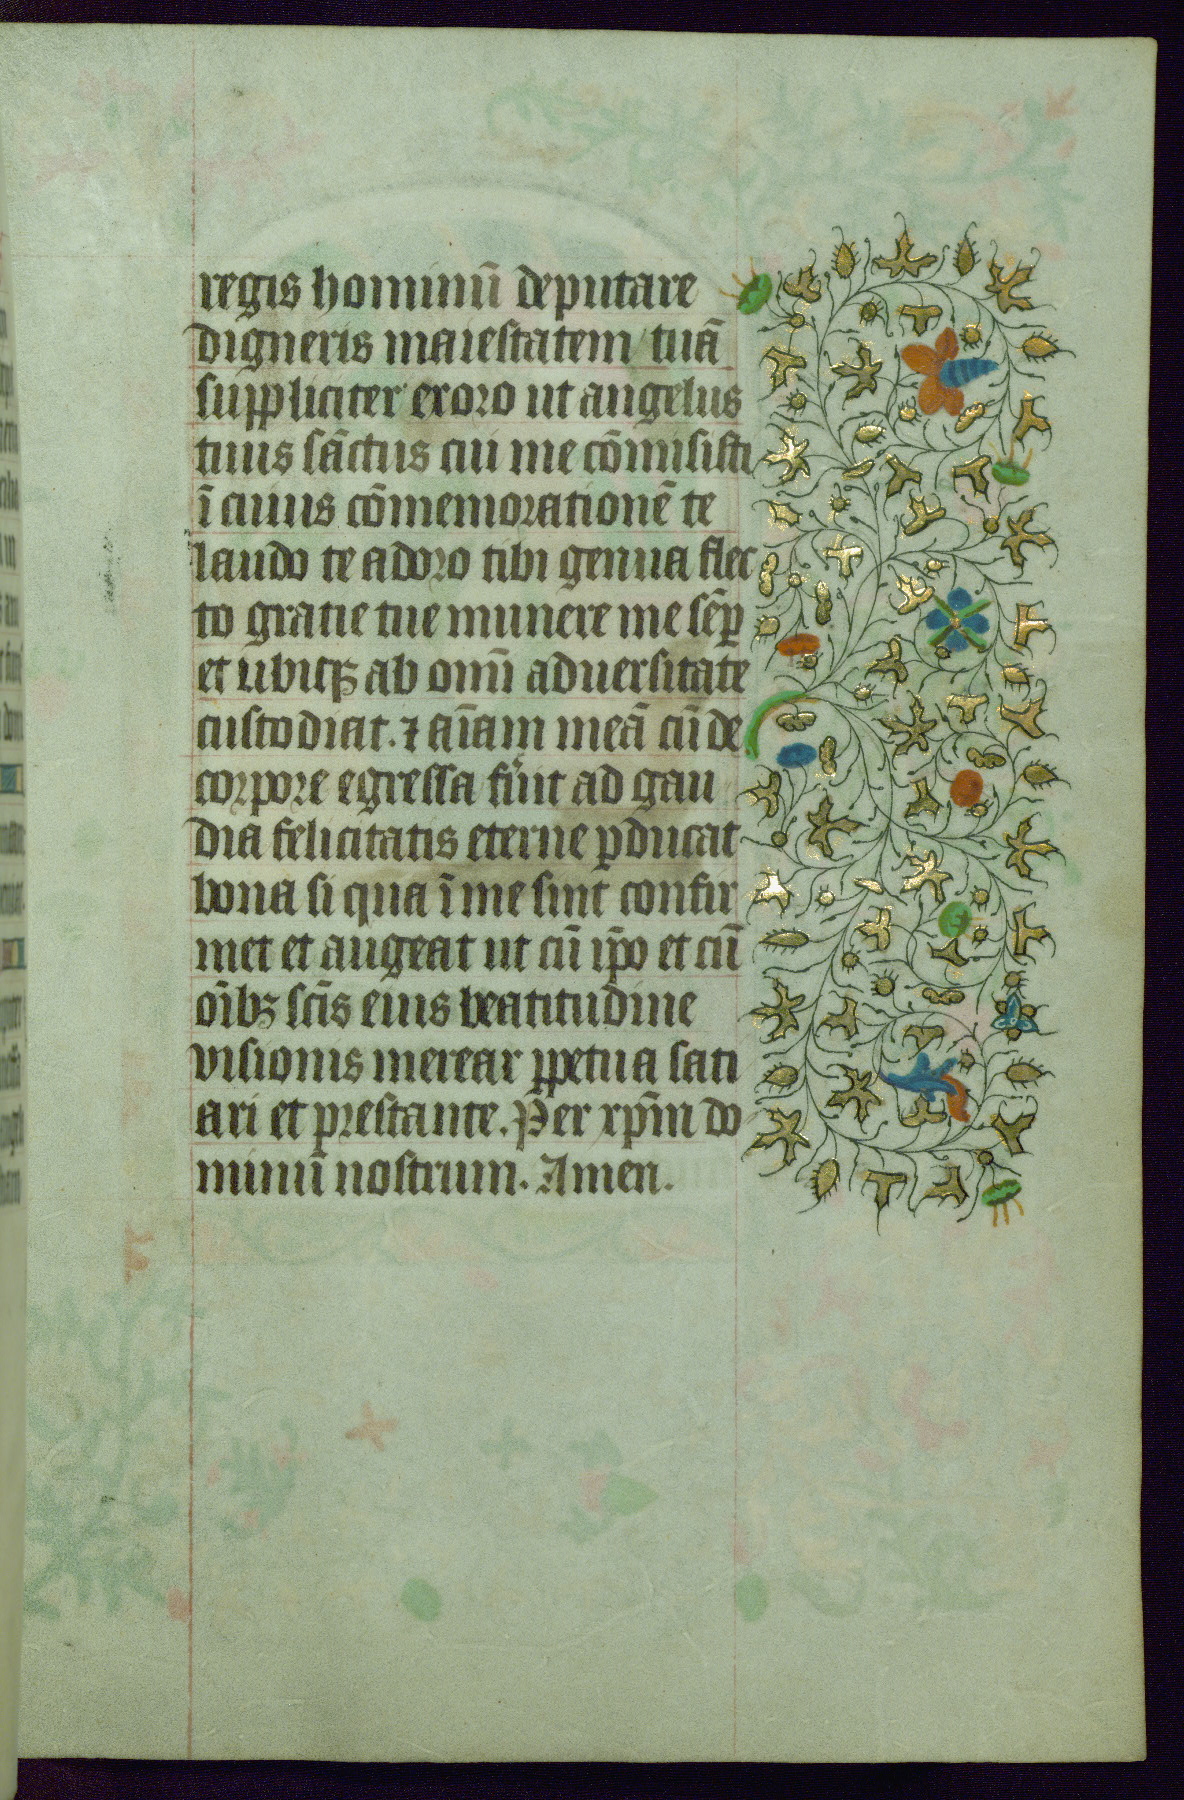 regis hominū deputare
digneris maiestatem tuā
suppliciter exoro ut angelus
tuus sāctus cui me cōmisisti
ī cuius cōmemorationē te
laudo te adoro tibi genua flec
to gratie tue munere me sēꝑ
et ubiqꝫ ab omī aduersitate
custodiat. ⁊ aīam meā cū de
corpore egressa fūit ad gau
dia felicitatis eterne ꝓducat
bona si qua ī me sint confir
met et augeat ut cū ip̄o et cū
oībꝫ sc̄is eius beatitudine
visionis merear ꝑpetua sati
ari et prestante. Per xp̄m do
minū nostrum. Amen.